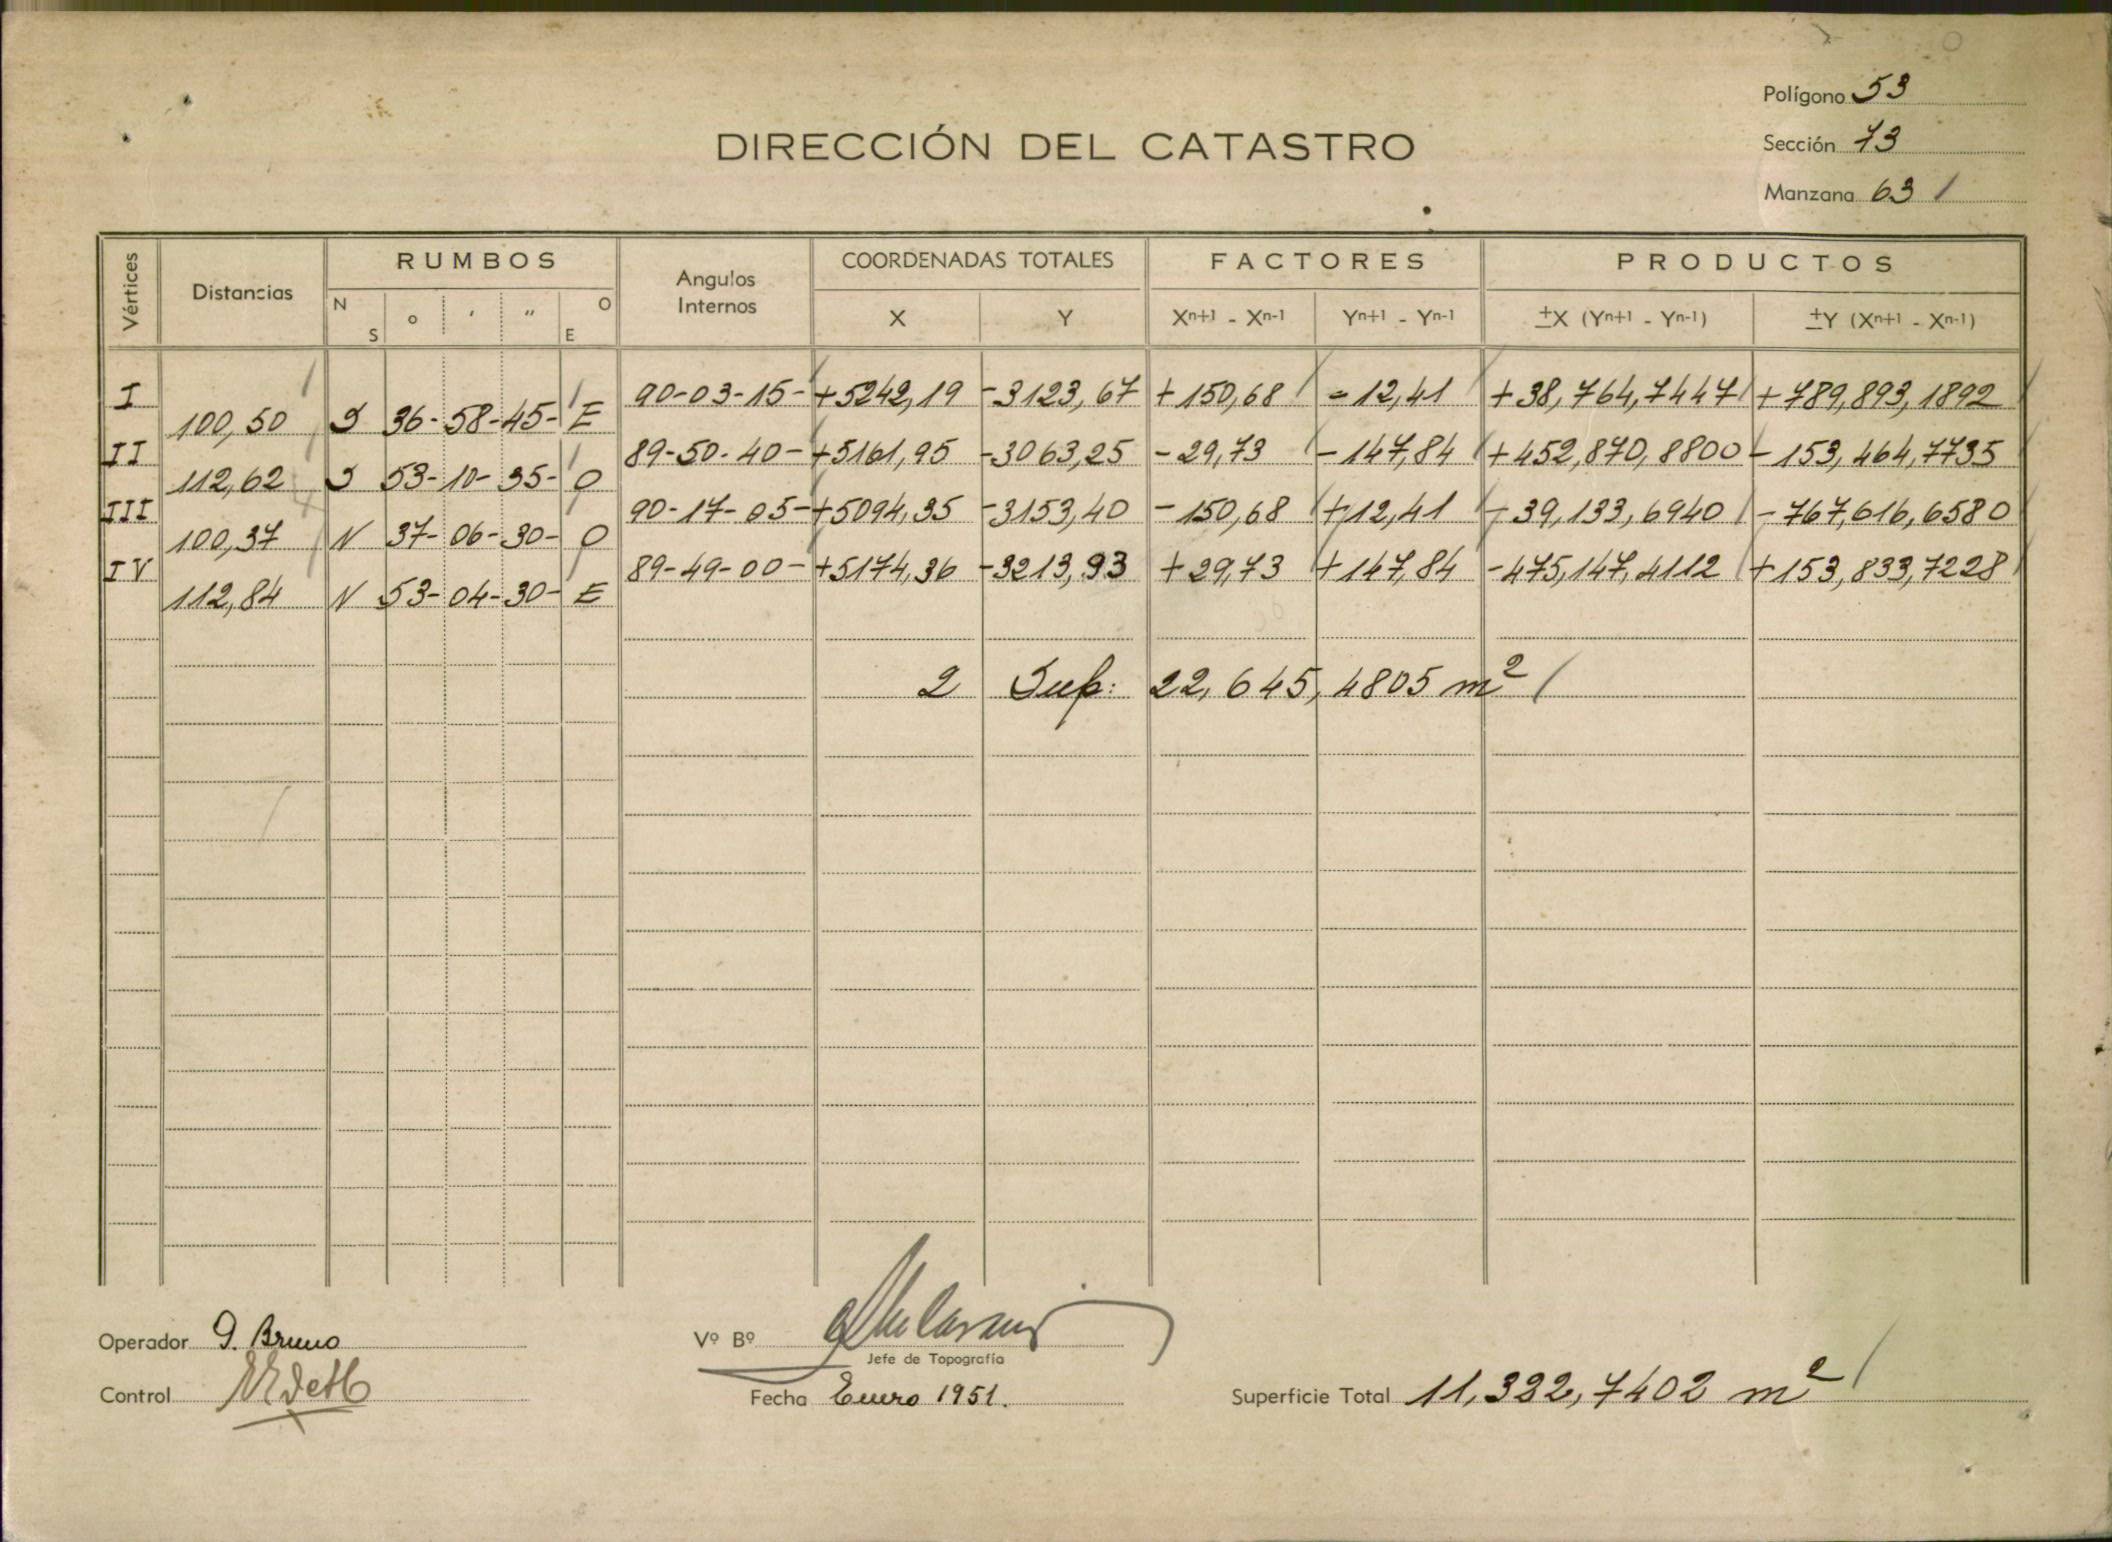 Polígono 53
DIRECCIÓN DEL CATASTRO
Sección 73
Manzana 63 /
Vértices Distancias RUMBOS Angulos Internos COORDENADAS TOTALES FACTORES PRODUCTOS
N S o ′ ″ O E X Y Xn+1 - Xn-1 Yn+1 - Yn-1 ±X (Yn+1 - Yn-1) ±Y (Xn+1 - Xn-1)
I 90-03-15- +5242,19 -3123,67 +150,68 -12,41 +38,764,7447 +789,893,1892
100,50 S 36-58-45- E
II 89-50-40- +5161,95 -3063,25 -29,73 -147,84 +452,870,8800 -153,464,7735
112,62 S 53-10-35- O
III 90-17-05- +5094,35 -3153,40 -150,68 +12,41 -39,133,6940 -767,616,6580
100,37 N 37-06-30- O
IV 89-49-00- +5174,36 -3213,93 +29,73 +147,84 -475,147,4112 +153,833,7228
112,84 N 53-04-30- E
2 Sup: 22,645,4805 m² /
Operador Bruno
Vº Bº
Jefe de Topografía
Control
Fecha Enero 1951.
Superficie Total 11,322,7402 m² /